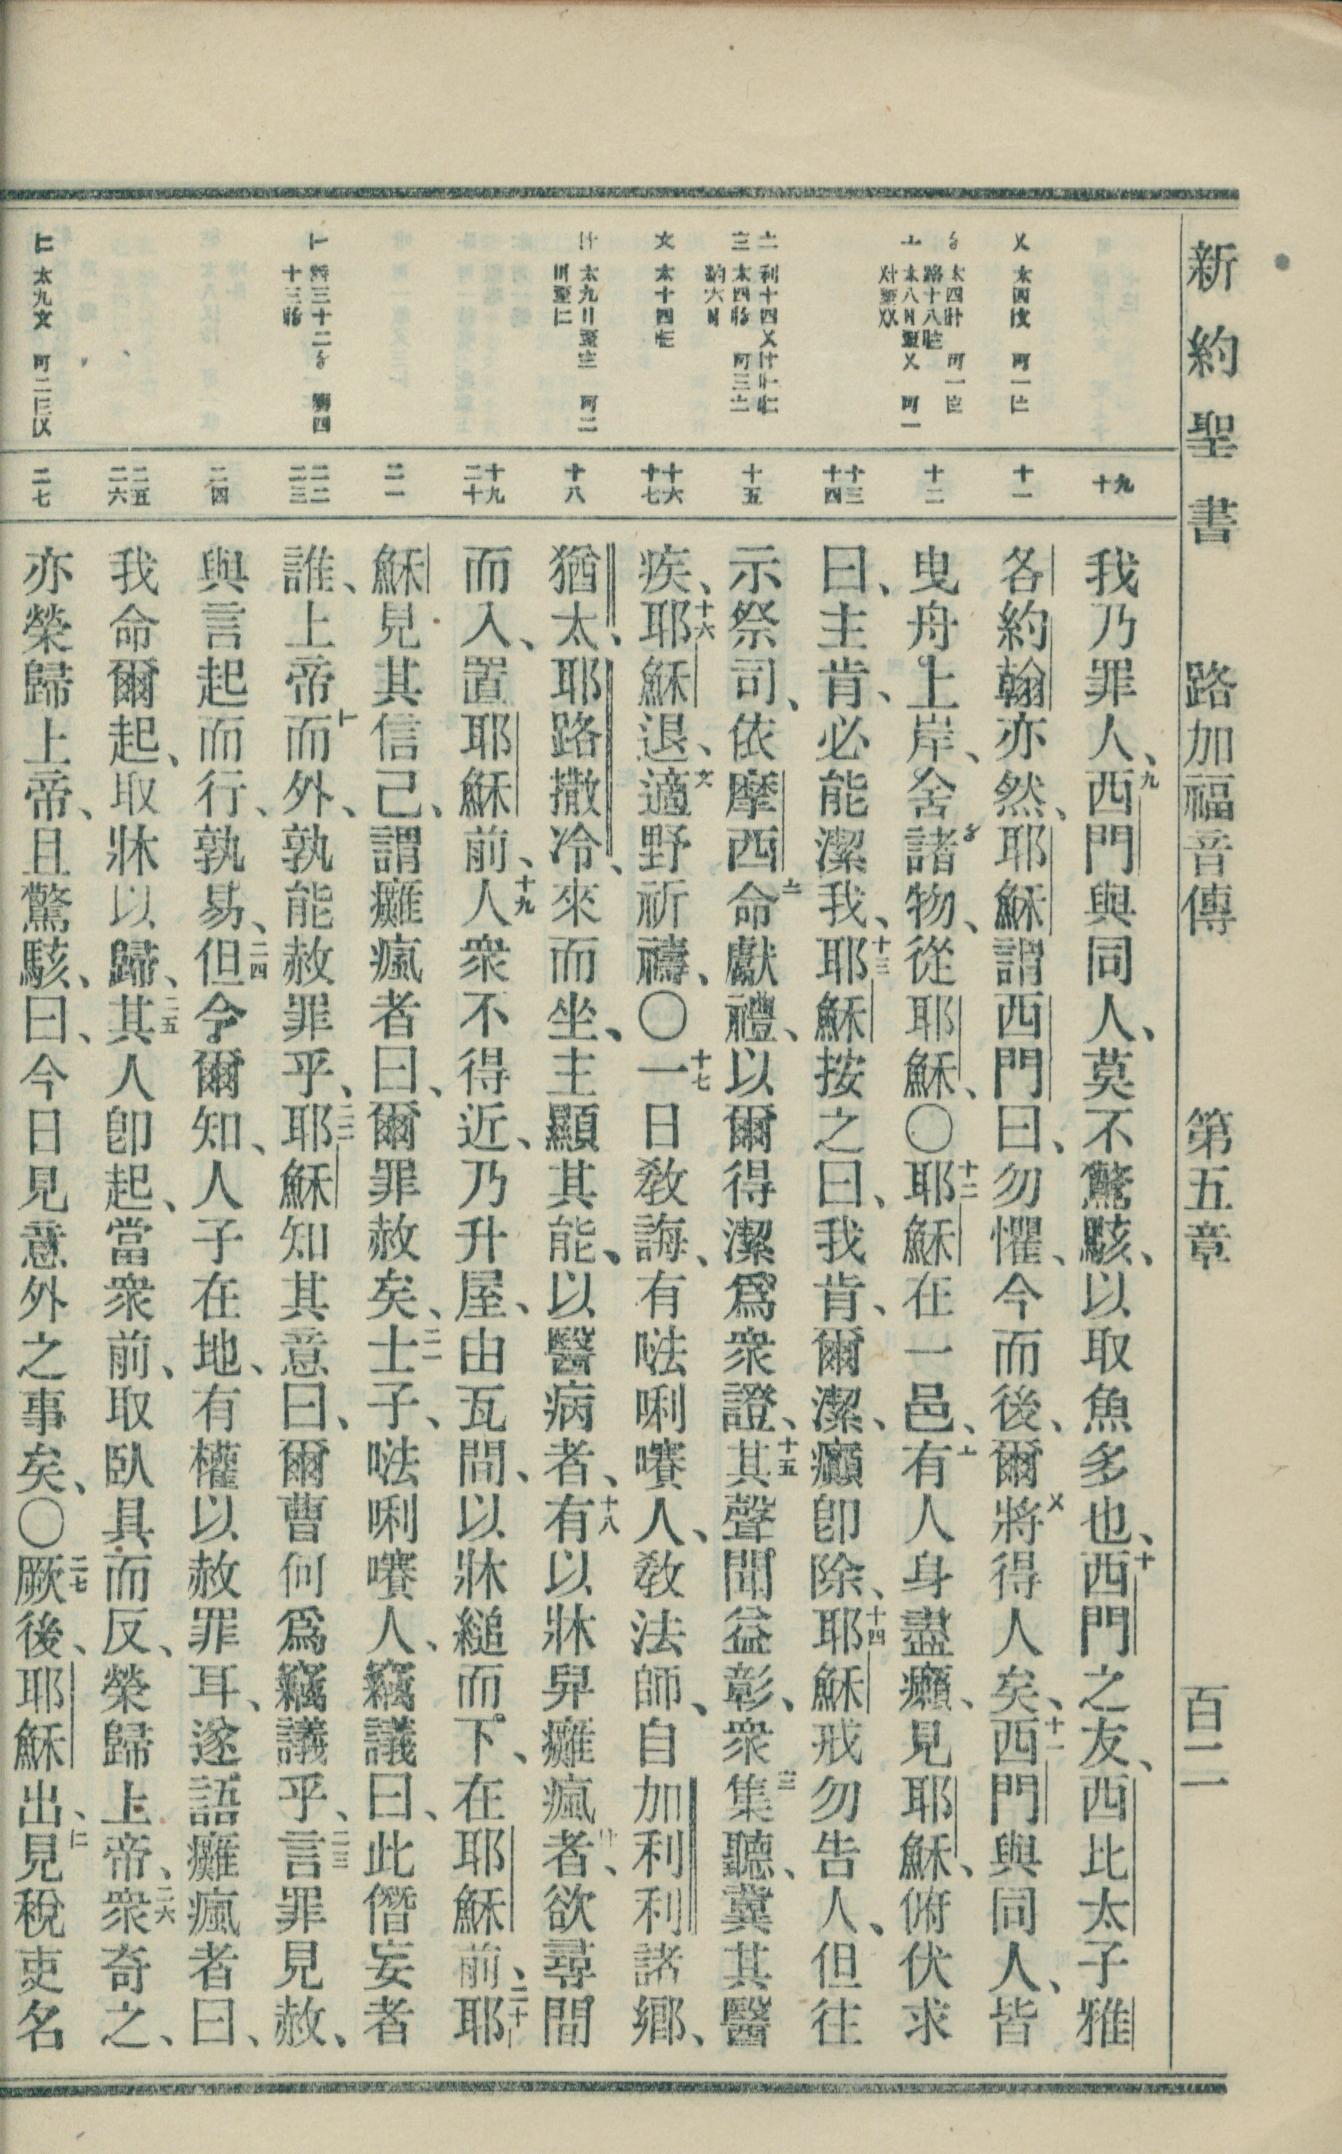 新約聖書 路加福音傳 第五章 百二
九 十
我乃罪人、九西門與同人、莫不驚駭、以取魚多也、十西門之友、西比太子雅
十一
各約翰亦然、耶穌謂西門曰、勿懼、今而後、爾將得人矣、十一西門與同人、皆
十二
曳舟上岸、舍諸物、從耶穌、〇十二耶穌在一邑、有人身盡癩、見耶穌、俯伏求
十三 十四
曰、主肯、必能潔我、十三耶穌按之曰、我肯、爾潔、癩卽除、十四耶穌戒勿告人、但往
十五
示祭司、依摩西命獻禮、以爾得潔爲衆證、十五其聲聞益彰、衆集聽、冀其醫
十六 十七
疾、十六耶穌退、適野祈禱、〇十七一日敎誨、有㗲唎㘔人、敎法師、自加利利諸鄉、
十八
猶太、耶路撒冷、來而坐、主顯其能、以醫病者、十八有以牀舁癱瘋者、欲尋間
十九 二十
而入、置耶穌前、十九人衆不得近、乃升屋、由瓦間、以牀縋而下、在耶穌前、二十耶
二一
穌見其信己、謂癱瘋者曰、爾罪赦矣、二一士子、㗲唎㘔人、竊議曰、此僭妄者
二二 二三
誰、上帝而外、孰能赦罪乎、二二耶穌知其意曰、爾曹何爲竊議乎、二三言罪見赦、
二四
與言起而行、孰易、二四但令爾知、人子在地、有權以赦罪耳、遂語癱瘋者曰、
二五 二六
我命爾起、取牀以歸、二五其人卽起、當衆前、取臥具而反、榮歸上帝、二六衆奇之、
二七
亦榮歸上帝、且驚駭、曰、今日見意外之事矣、〇二七厥後、耶穌出、見稅吏名